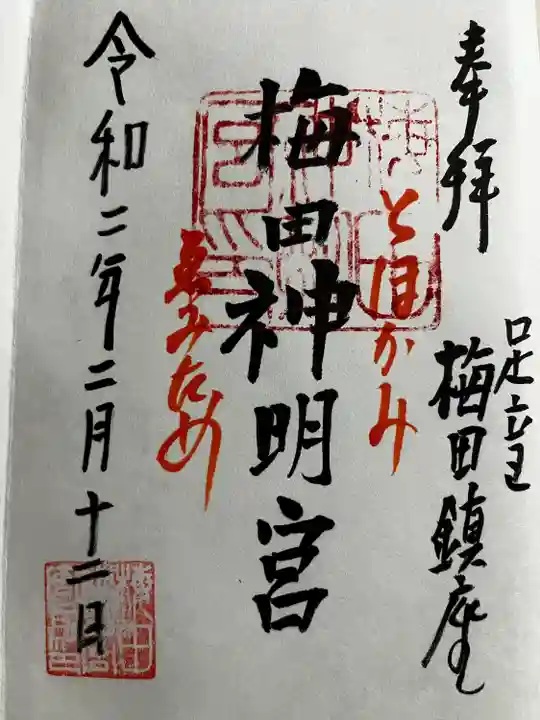 奉拝
足立
梅田鎮座
とほかみ
梅田神明宮
ゑみため
令和二年二月十二日